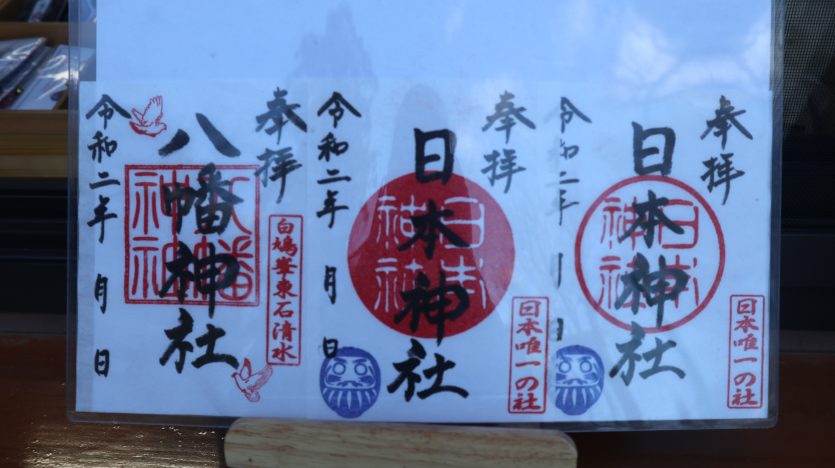 奉拝
日本神社
日本唯一の社
令和二年 月 日
奉拝
日本神社
日本唯一の社
令和二年 月 日
奉拝
八幡神社
白鳩峯東石清水
令和二年 月 日